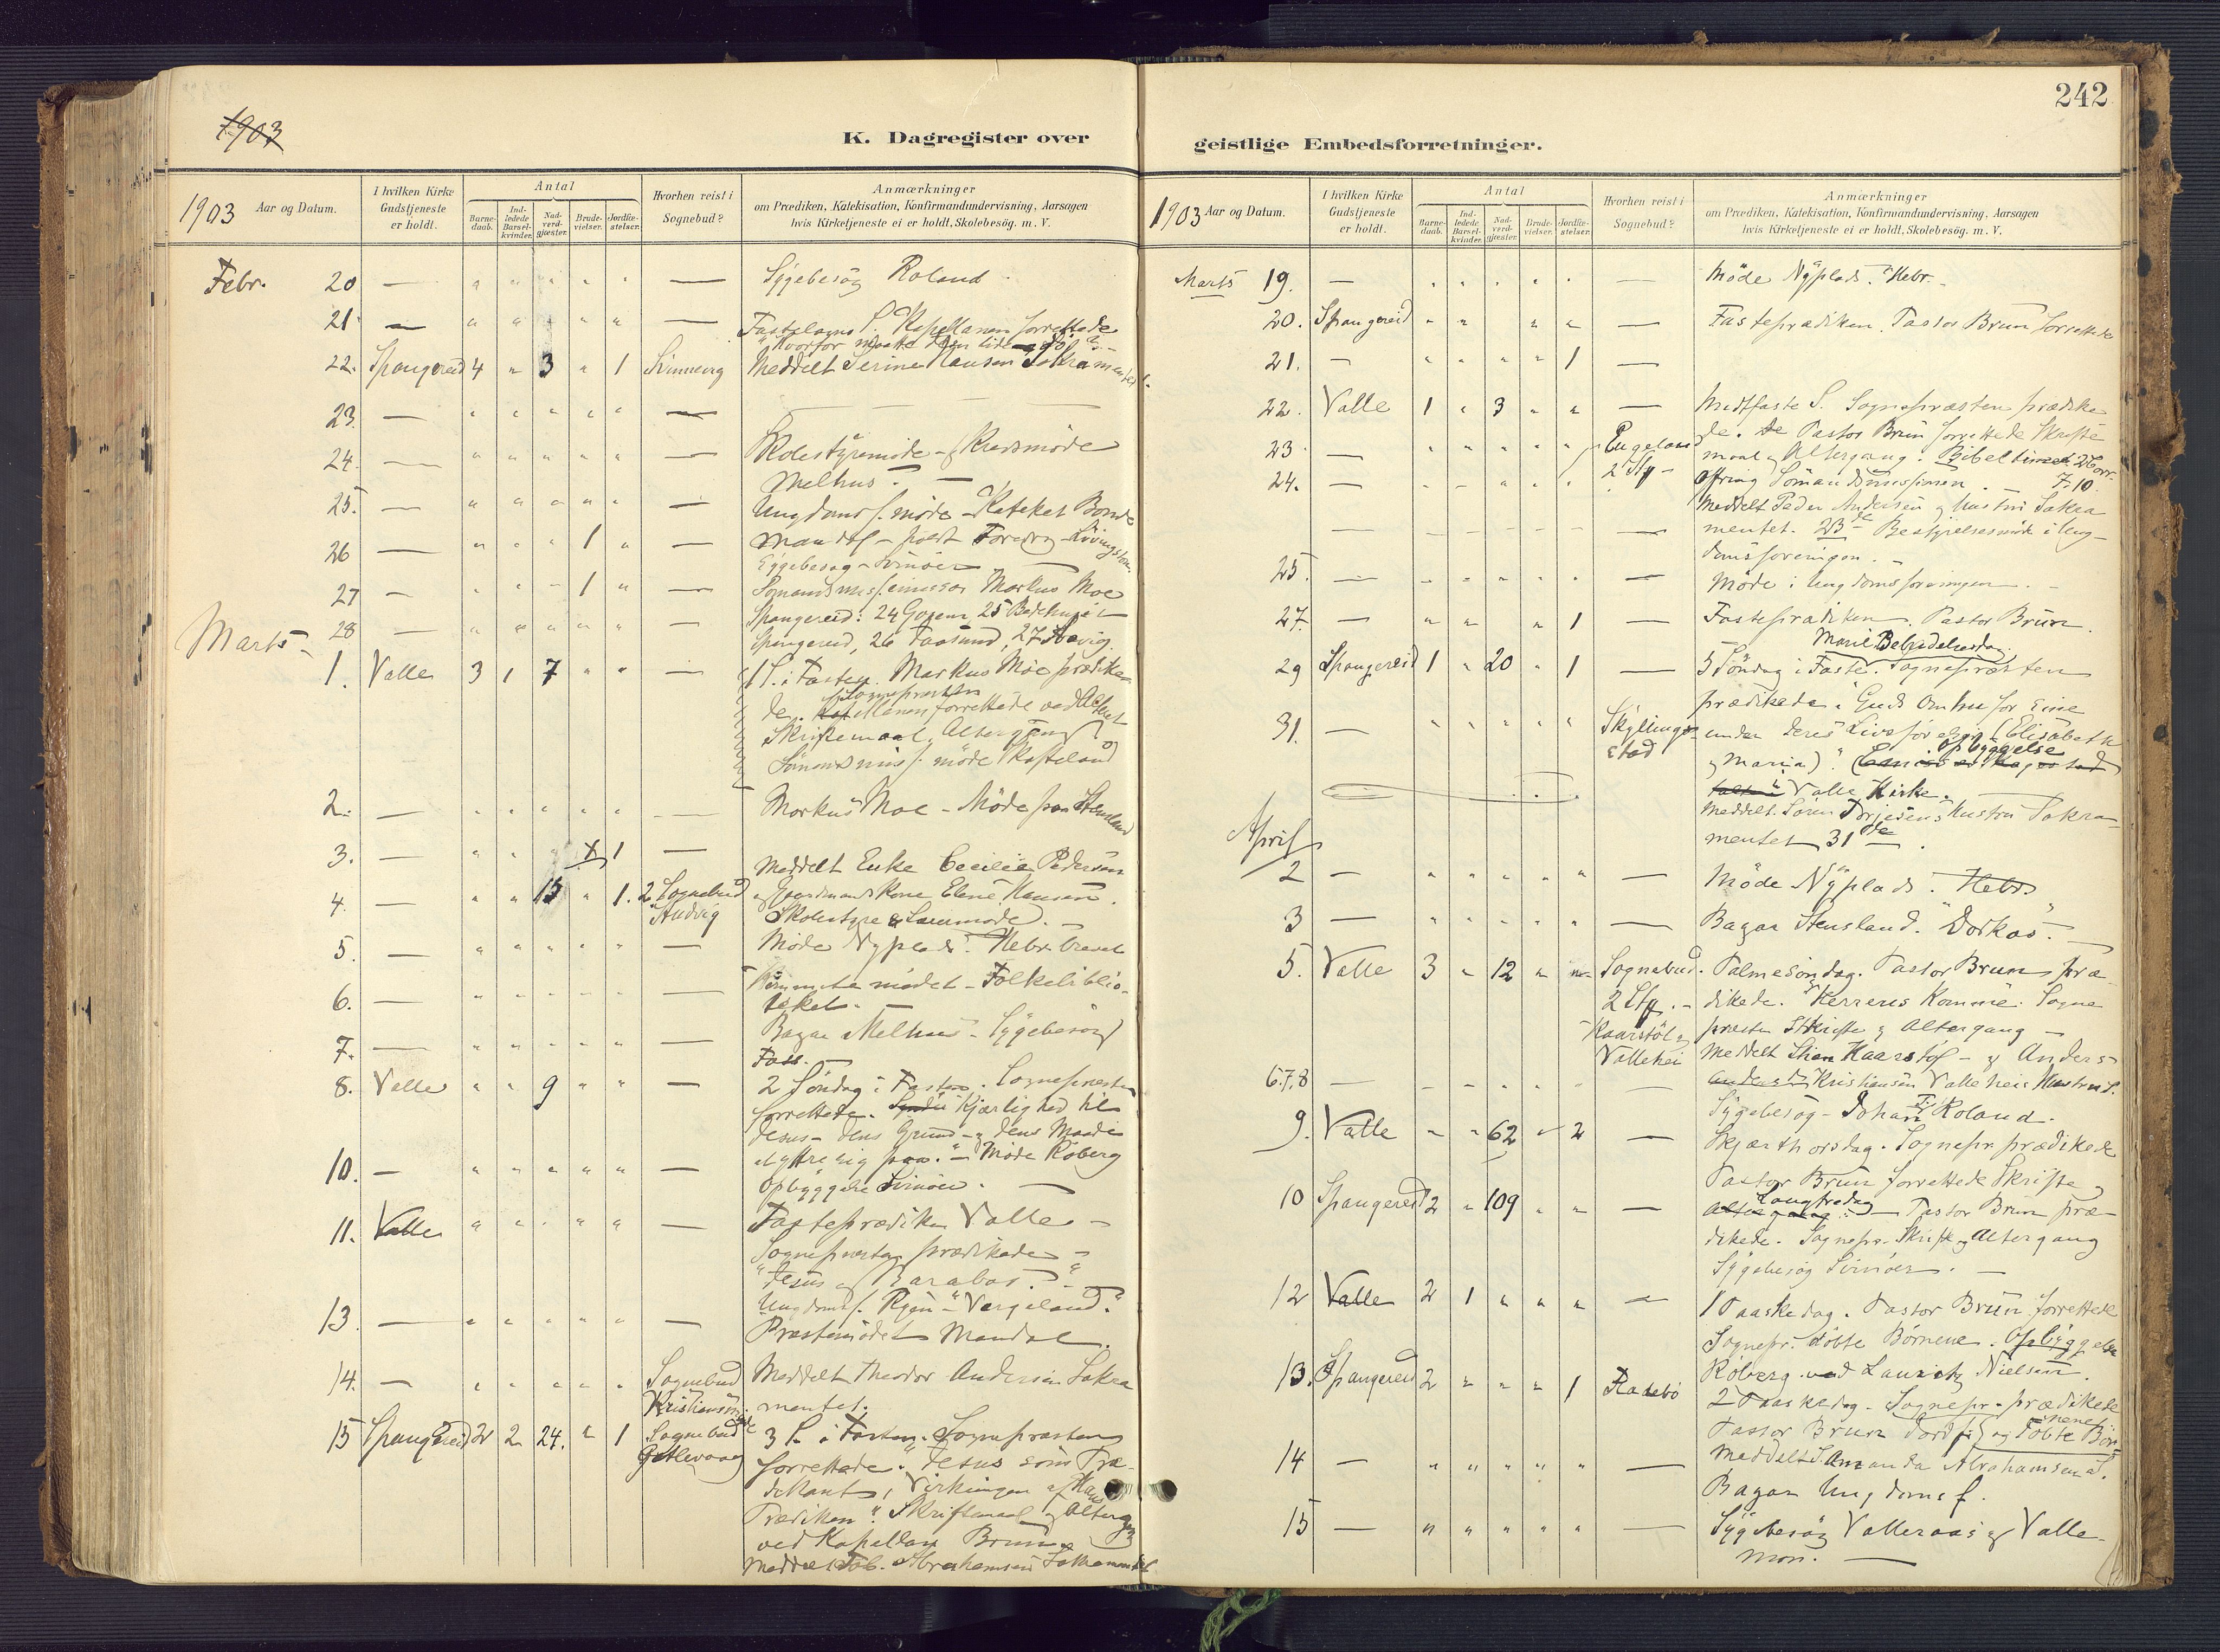 242
1903
K. Dagregister over
geistlige Embedsforretninger.
1903 Aar og Datum.
I hvilken Kirke Gudstjeneste er holdt.
Antal
Barne-daab.
Ind-ledede Barsel-kvinder.
Nad-verd-gjæster.
Brude-vielser.
Jordfæ-stelser.
Hvorhen reist i Sognebud?
Anmærkninger
om Prædiken, Katekisation, Konfirmandundervisning, Aarsagen
hvis Kirketjeneste ei er holdt, Skolebesög. m. V.
Febr. 20 — " " " " " — Sygebesög Roland
21 — " " " " " — Fastelavns S. Kapellanen forrettede
"Hvorfor maatte Jesu lide og dö".
22. Spangereid 4 " 3 " 1 Svinnevig Meddelt Serine Hansen Sakramentet.
23. — " " " " " —
24. — " " " " " — Skolestyremöde - Kredsmöde
Melhus. —
25. — " " " " " — Ungdomsf. möde - Kateket Bonde
26 — " " " 1 " — Mandal - holdt Foredrag - Livingston.
Sygebesög - Svinöer
27 — " " " 1 " — Sömandsmis. emissær Markus Moe
Spangereid: 24 Gosen, 25 Bedehuset
28 — " " " " " — Spangereid, 26 Faasund, 27 Aavig.
Marts
1. Valle 3 1 7 " " — 1 S. i Fasten. Markus Moe prædike-
de. Sognepræsten
Kapellanen forrettede ved Alteret
Skriftemaal, Altergang
Sömandsmis f. möde Skofteland
2. — " " " " " — Markus Moe - Möde paa Stensland
3. — " " " 1 1 —
Meddelt Enke Cecilie Pedersen
4. — " " 15 " 1. 2 Sognebud og Gaardmandskone Elene Hansen.
Audvig Skolestyre & Lærermöde. —
5. — " " " " " — Möde Nyplads. Hebr. brevet
6. — " " " " " — Komunemödet - Folkebiblio-
teket. —
7. — " " " " " — Bazar Melhus - Sygebesög
Foss. —
8. Valle " " 9 " " — 2 Söndag i Fasten. Sognepresten
forrettede. Kjærlighed til
Jesus - dens Grund - dens Maade
at yttre sig paa." - Möde Roberg
10. — " " " " " — Opbyggelse Svinöer. —
11. Valle " " " " " — Fasteprædiken Valle -
Sognepræsten prædikede -
"Jesus og Barabas." -
Ungdomsf. Rgin - "Vergeland."
13. — " " " " " — Præstemödet Mandal.
14. — " " " " " Sognebud Meddelt Theodor Andersen Sakra
mentet.
15 Spangereid 2 2 24. " 1 Sognebud 3 S. i Fasten. Sognepræsten
forrettede. "Jesus som Præ-
dikant, Virkningen af Hans
Prædiken". Skriftemaal og Altergang
ved Kapellan Brun.
Meddelt Tob. Abrahamsen Sakramentet
1903 Aar og Datum.
I hvilken Kirke Gudstjeneste er holdt.
Antal
Barne-daab.
Ind-ledede Barsel-kvinder.
Nad-verd-gjæster.
Brude-vielser.
Jordfæ-stelser.
Hvorhen reist i Sognebud?
Anmærkninger
om Prædiken, Katekisation, Konfirmandundervisning, Aarsagen
hvis Kirketjeneste ei er holdt, Skolebesög. m. V.
Marts 19. — " " " " " — Möde Nyplads. "Hebr. -
20. Spangereid " " " " — Fasteprædiken. Pastor Brun forrettede
21. — " " " " 1 —
22. Valle 1 " 3 " " — Midtfaste S. Sognepræsten prædike
de. Pastor Brun forrettede Skrifte
23 — " " " " " Engeland maal og Altergang. Bibeltime 2 Cor.
24. — " " " " " 2 Stk - Ofring Sömandsmissionen. 7.10
Meddelt Peder Andersen og hustru Sakra
mentet. 23de Bestyrelsesmöde i Ung-
domsforeningen.
25. — " " " " " — Möde i Ungdomsforeningen. -
27. — " " " 1 — Fasteprædiken. Pastor Brun.
Mariæ Bebudelsesdag
29 Spangereid 1 " 20 " 1 — 5 Söndag i Faste. Sognepræsten
prædikede "Guds Omhu for Sine
31. — " " " " " Skyllingsstad under deres Livsförelse (Elisabeth
og Maria)". Opbyggelse
i Valle Kirke. —
Meddelt Sören Torjesens Hustru Sakra-
mentet 31de.
April
2 — " " " " " — Möde Nyplads. Hebr.
3 — " " " " " — Bazar Stensland. "Dorkas". —
5. Valle 3 " 12 " " Sognebud. Palmesöndag. Pastor Brun præ-
2 Stk. - dikede. "Herrens Komme. Sogne
Kaarstöl præsten Skrifte og Altergang -
Vallehei Meddelt Stian Kaarstöl - og Anders
6.7.8 — " " " " " — Kristiansen Valleheis Hustru S.
Sygebesög - Johan T. Roland.
9. Valle " " 62 " 2 — Skjærthorsdag. Sognepr. prædikede
Pastor Brun forrettede Skrifte og
10 Spangereid 2 " 109 " " — Altergang. Langfredag — Pastor Brun præ-
dikede. Sognepr. Skrifte og Altergang
Sygebesög Svinöer. —
12 Valle 2 1 " " " — 1 Paaskedag. Pastor Brun forrettede
Sognepr. döbte Börnene. Opbyggelse
13. Spangereid 2 " " " 1 Ramsbö Roberg ved Lauritz Nielsen.
2 Paaskedag - Sognepr. prædikede
Pastor Brun Jordf. og Döbte Börnene.
14 — " " " " " — Meddelt S. Amanda Abrahamsen S.
Bazar Ungdomsf.
15 — " " " " " — Sygebesög Valleraas og Valle-
mon. —